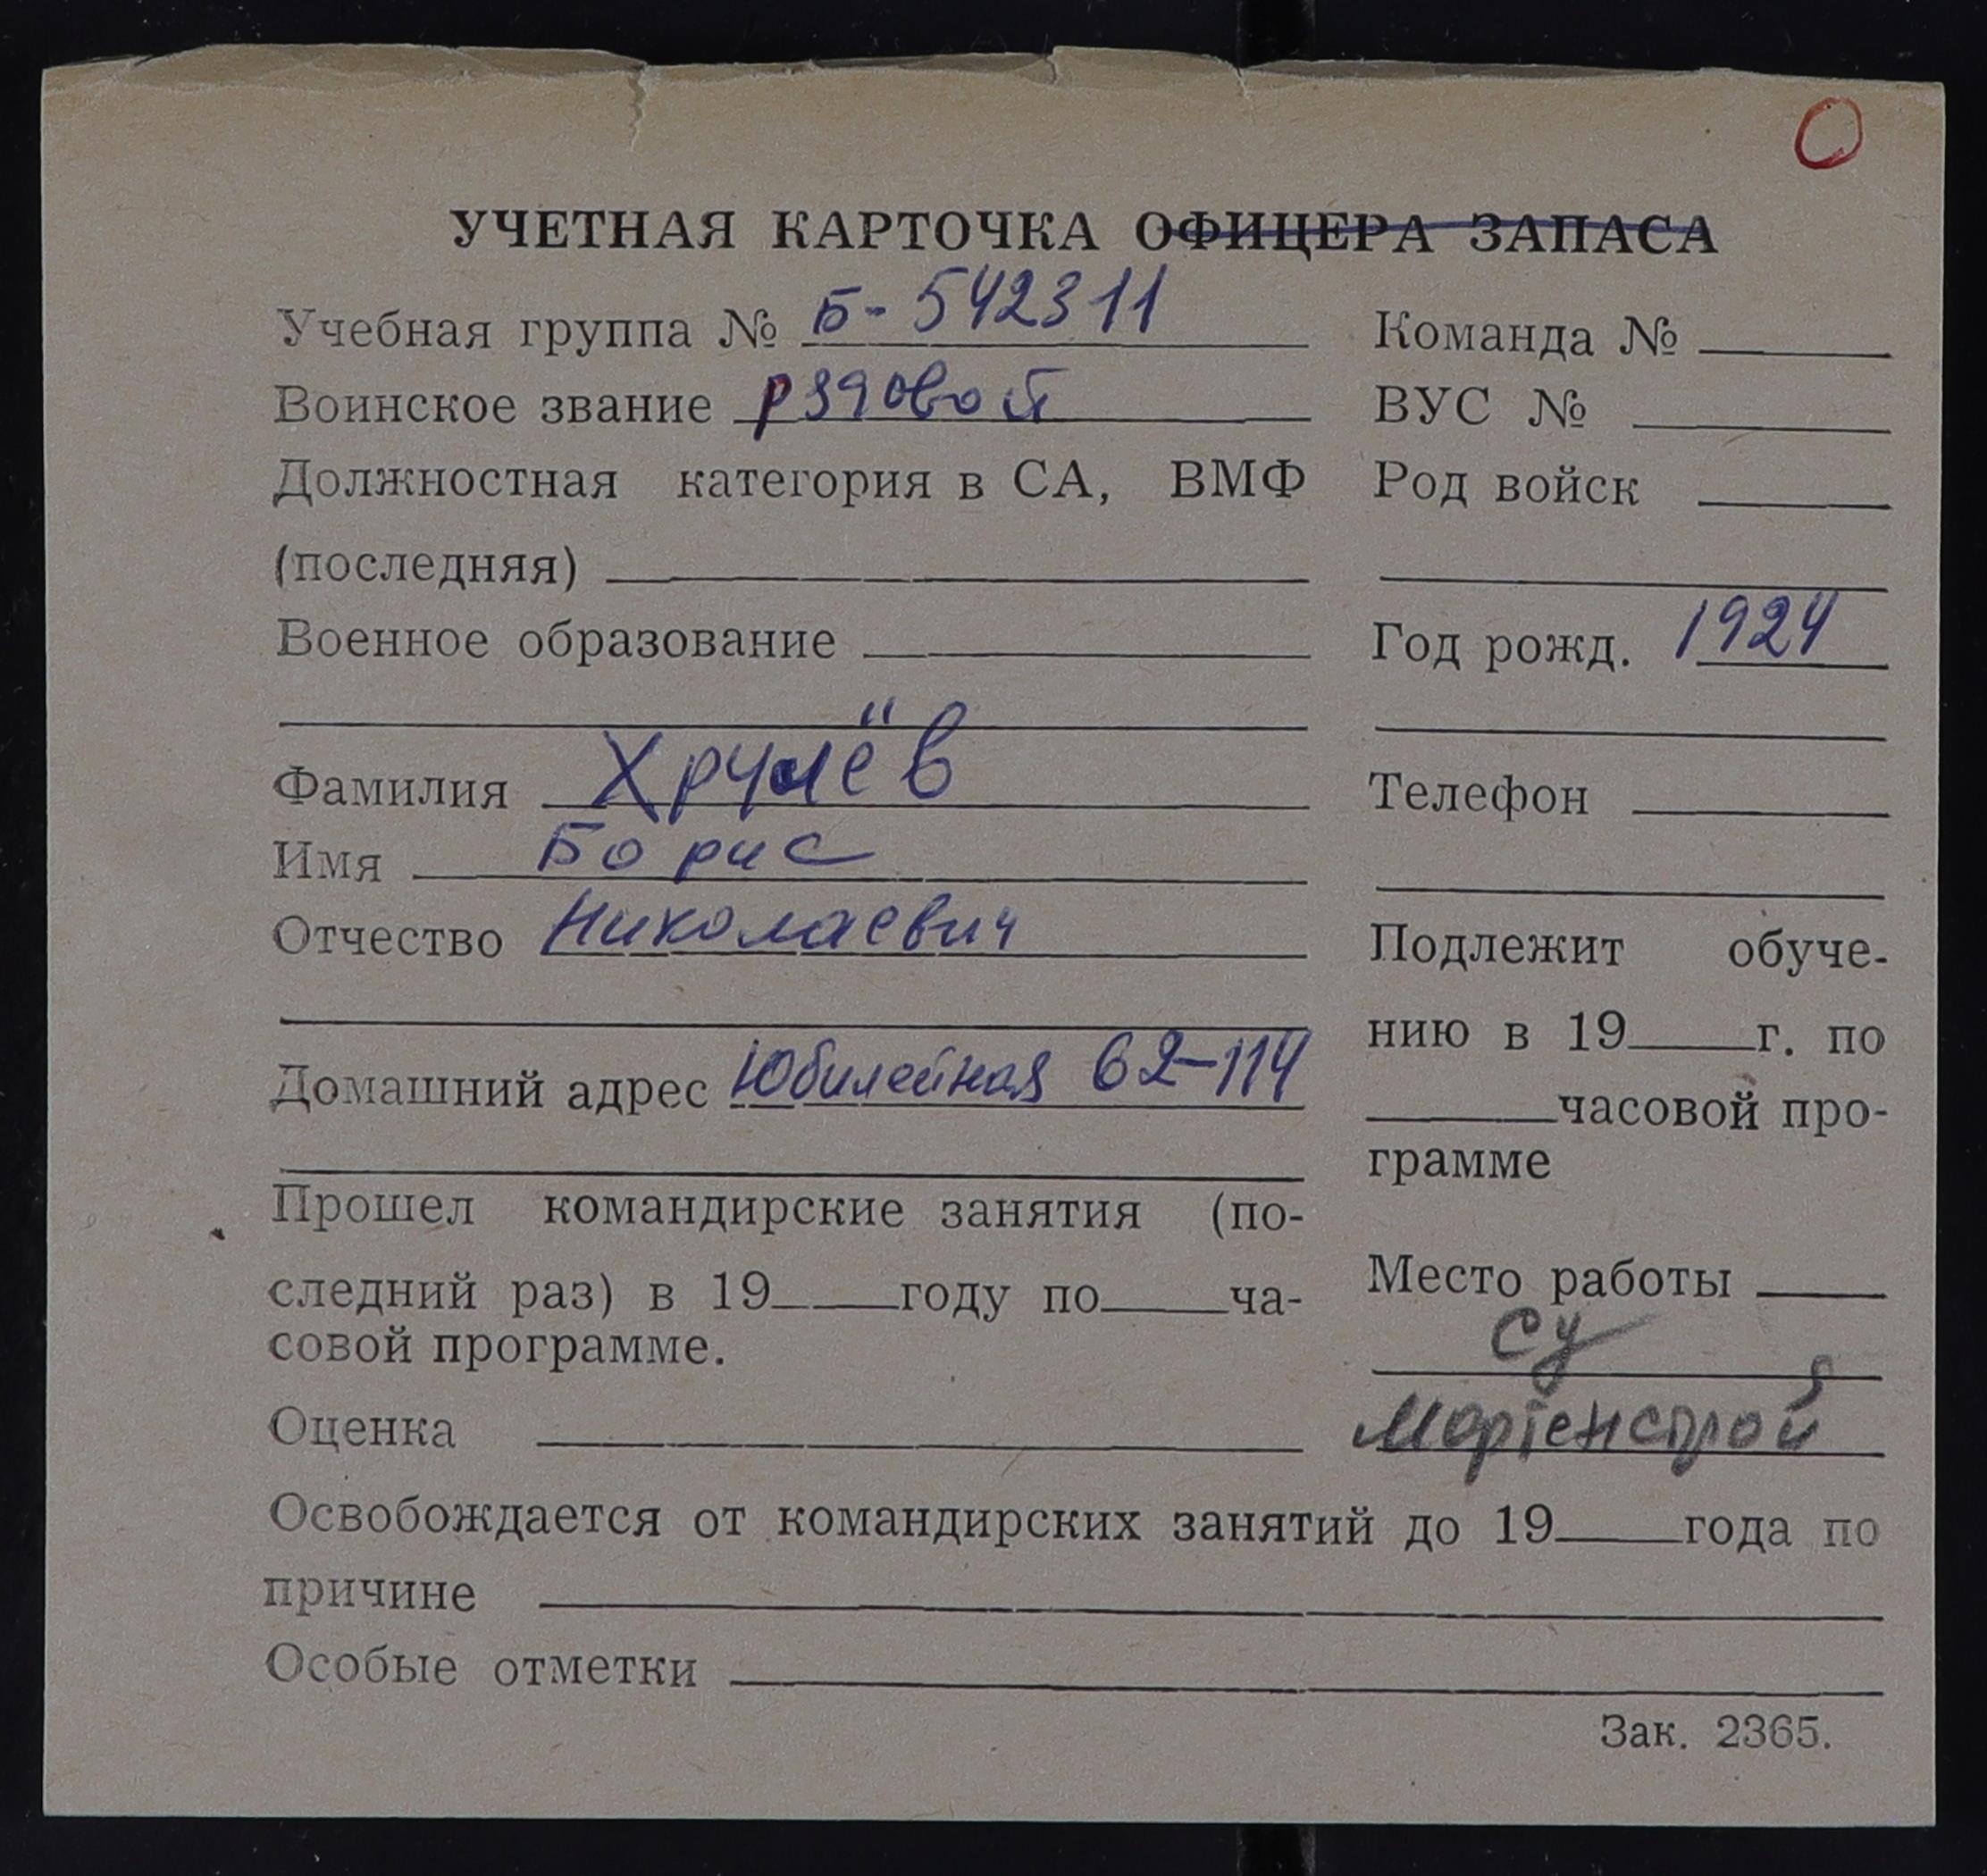 УЧЕТНАЯ КАРТОЧКА ОФИЦЕРА ЗАПАСА
Учебная группа № Б-542311
Воинское звание рядовой
Должностная категория в СА, ВМФ
(последняя)
Военное образование
Фамилия Хрулёв
Имя Борис
Отчество Николаевич
Домашний адрес Юбилейная 62-114
Прошел командирские занятия (по-
следний раз) в 19 году по ча-
совой программе.
Оценка
Команда №
ВУС №
Род войск
Год рожд. 1924
Телефон
Подлежит обуче-
нию в 19 г. по
часовой про-
грамме
Место работы
СУ
Мартенстрой
Освобождается от командирских занятий до 19 года по
причине
Особые отметки
Зак. 2365.